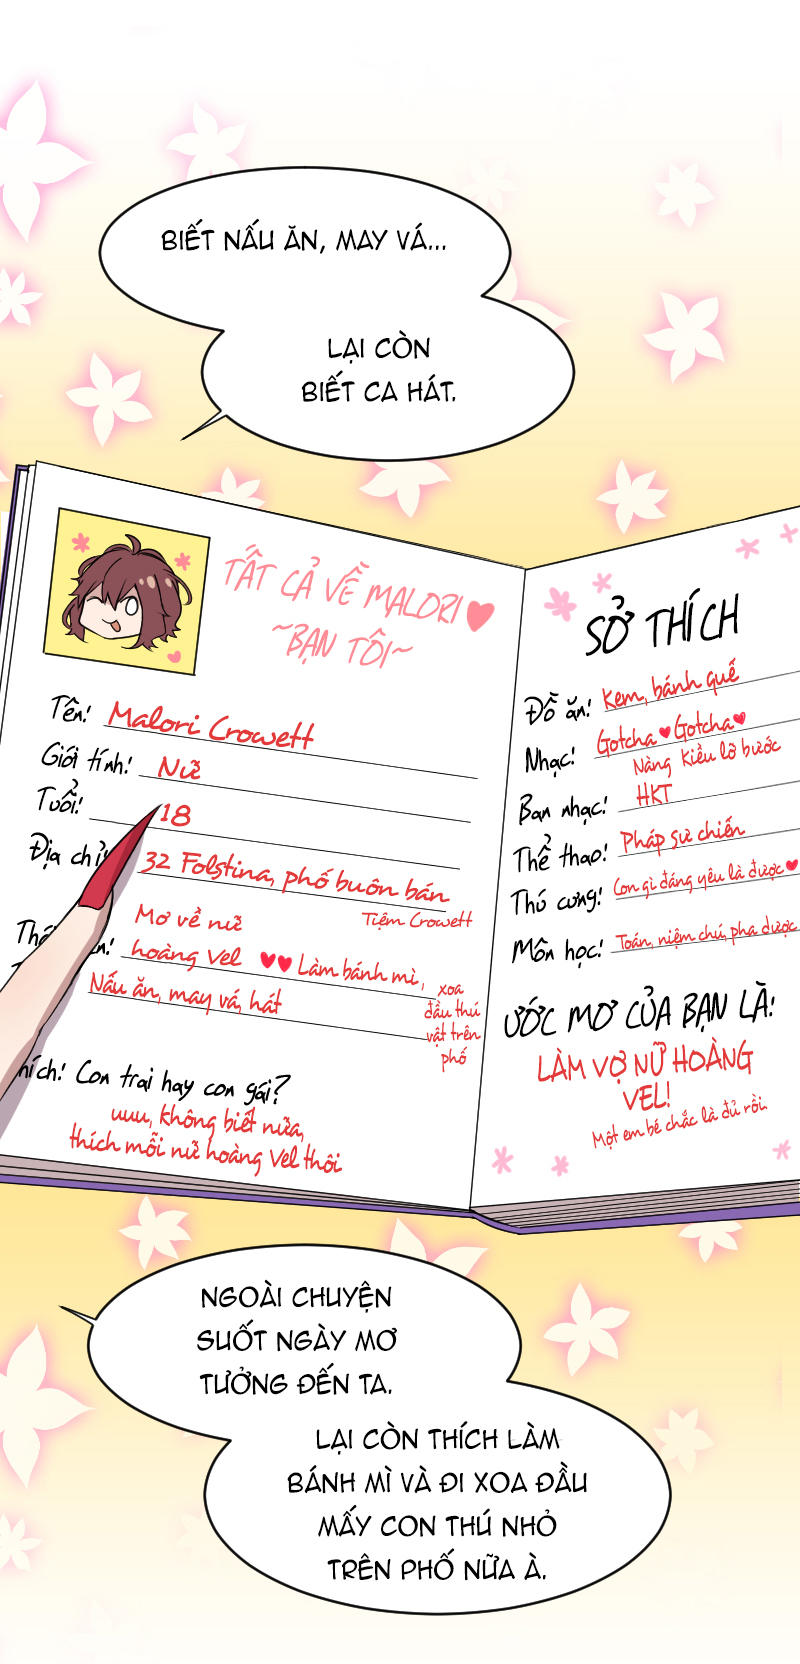 BIẾT NẤU ĂN, MAY VÁ...
LẠI CÒN
BIẾT CA HÁT.
TẤT CẢ VỀ MALORI
~BẠN TÔI~
Tên: Malori Crowett
Giới tính: Nữ
Tuổi: 18
Địa chỉ: 32 Folstina, phố buôn bán
Tiệm Crowett
Mơ về nữ
hoàng Vel ♥♥ Làm bánh mì,
xoa
đầu thú
vật trên
phố
Nấu ăn, may vá, hát
hích: Con trai hay con gái?
uuu, không biết nữa,
thích mỗi nữ hoàng Vel thôi
SỞ THÍCH
Đồ ăn: Kem, bánh quế
Nhạc: Gotcha ♥ Gotcha ♥
Nàng Kiều lỡ bước
Ban nhạc: HKT
Thể thao: Pháp sư chiến
Thú cưng: Con gì đáng yêu là được ♥
Môn học: Toán, niệm chú, pha dược
ƯỚC MƠ CỦA BẠN LÀ:
LÀM VỢ NỮ HOÀNG
VEL!
Một em bé chắc là đủ rồi.
NGOÀI CHUYỆN
SUỐT NGÀY MƠ
TƯỞNG ĐẾN TA.
LẠI CÒN THÍCH LÀM
BÁNH MÌ VÀ ĐI XOA ĐẦU
MẤY CON THÚ NHỎ
TRÊN PHỐ NỮA À.